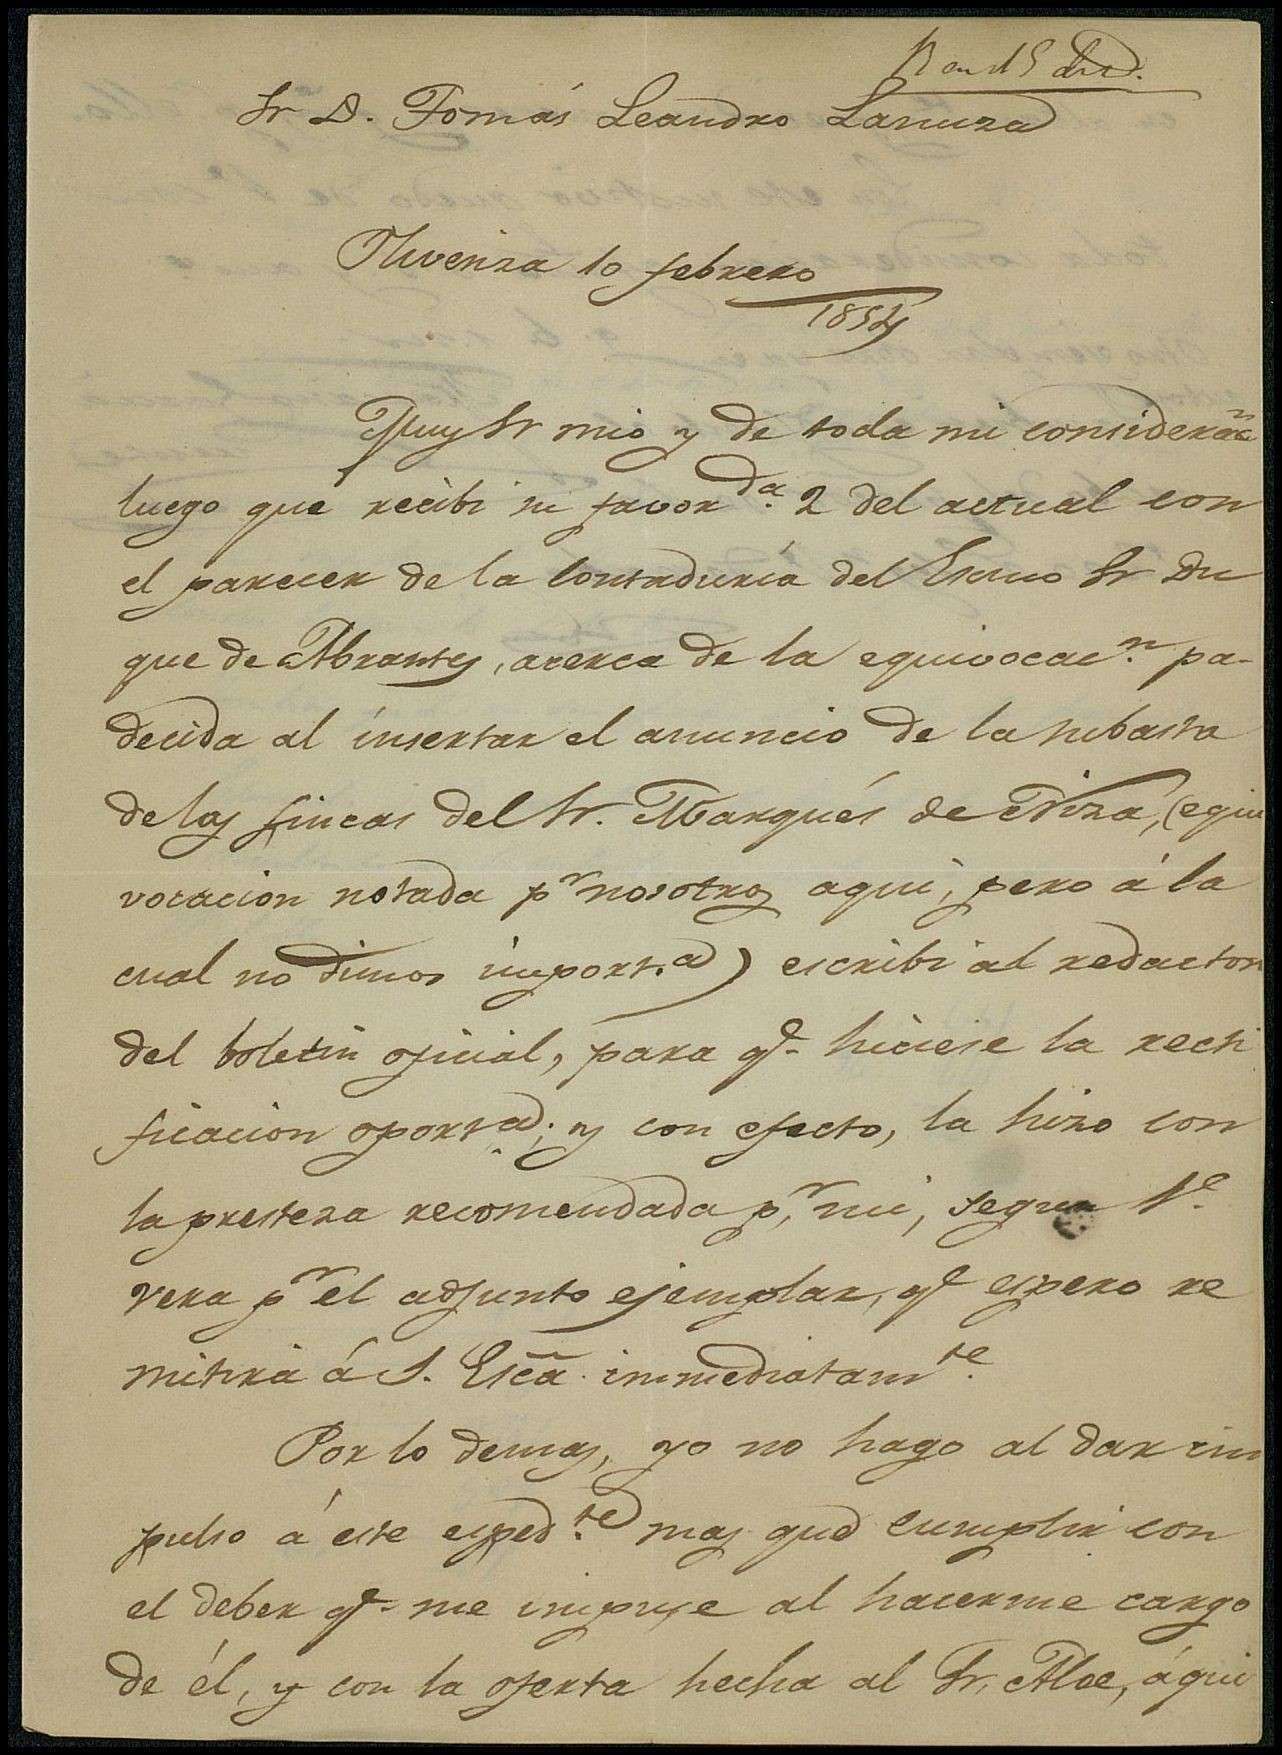 R en 15 dho.
Sr D. Tomás Leandro Lanuza
Olivenza 10 febrero
1854
Muy Sr mio y de toda mi considerac.n
luego que recibi su favor da. 2 del actual con
el parecer de la Contrduría del Escmo Sr Du
que de Abrantes, acerca de la equivocac.n pa-
decida al insertar el anuncio de la subasta
de las fincas del Sr. Marqués de Niza, (equi
vocacion notada pr nosotros aqui, pero á la
cual no dimos import.a) escribi al redactor
del boletin oficial, para qe. hiciese la recti
ficacion oport.a; y con efecto, la hizo con
la presteza recomendada p.r mi, segun Ve.
vera pr el adjunto ejemplar, qe espero re
mitirá á S. Escã. immediatamte.
Por lo demas, yo no hago al dar im
pulso á este esped.te mas que cumplir con
el deber qe. me impuse al hacerme cargo
de él, y con la oferta hecha al Sr. Aloe, á quí